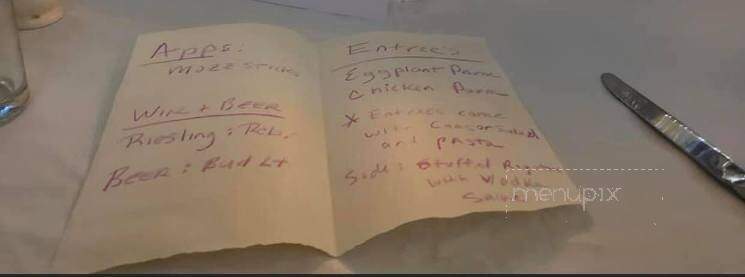 Apps:
mozz sticks
Wine + Beer
Riesling: Reb.
Beer: Bud Lt
Entrees
Eggplant Parm
Chicken Parm
* Entrees come
with Caesar Salad
and pasta
Side: Stuffed
with Vodka
menupix